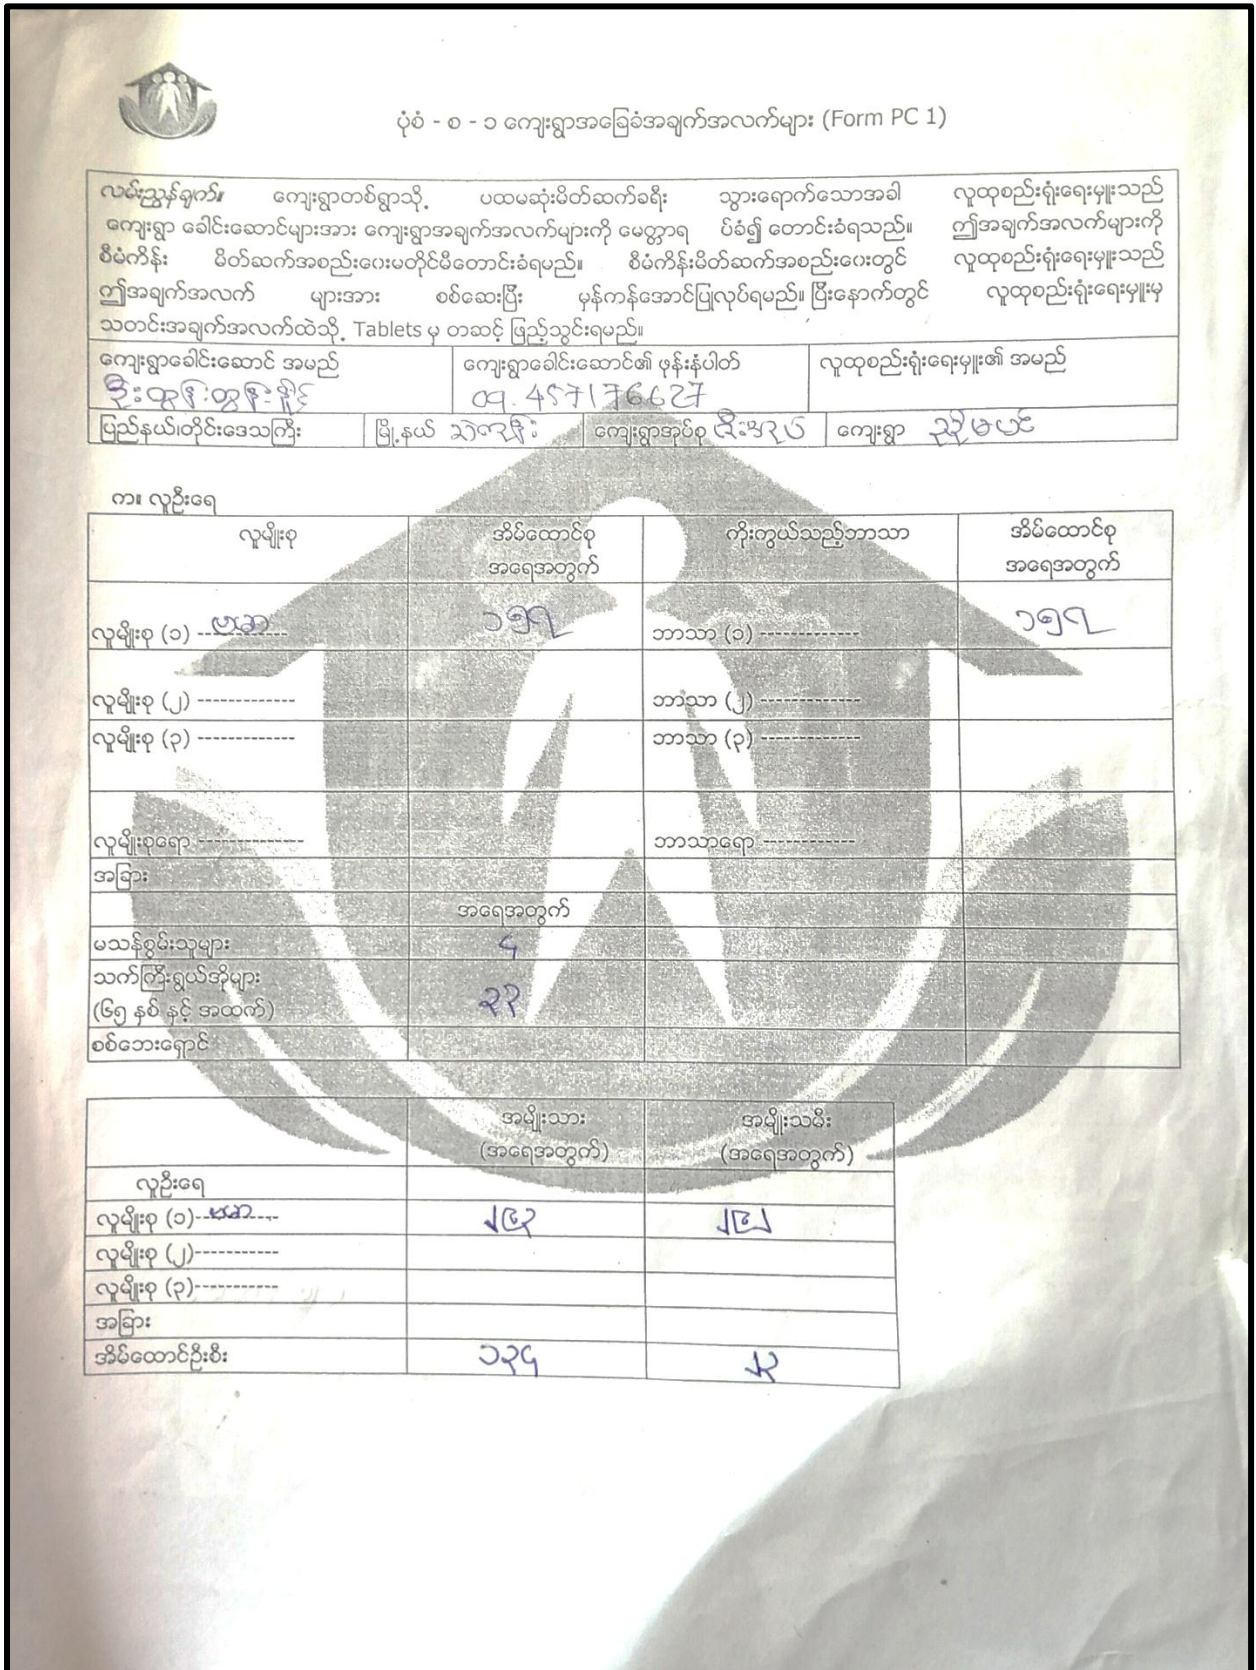 ပုံစံ - စ - ၁ ကျေးရွာအခြေခံအချက်အလက်များ (Form PC 1)
လမ်းညွှန်ချက်။ ကျေးရွာတစ်ရွာသို့ ပထမဆုံးမိတ်ဆက်ခရီး သွားရောက်သောအခါ လူထုစည်းရုံးရေးမှူးသည်
ကျေးရွာ ခေါင်းဆောင်များအား ကျေးရွာအချက်အလက်များကို မေတ္တာရ ပ်ခံ၍ တောင်းခံရသည်။ ဤအချက်အလက်များကို
စီမံကိန်း မိတ်ဆက်အစည်းဝေးမတိုင်မီတောင်းခံရမည်။ စီမံကိန်းမိတ်ဆက်အစည်းဝေးတွင် လူထုစည်းရုံးရေးမှူးသည်
ဤအချက်အလက် များအား စစ်ဆေးပြီး မှန်ကန်အောင်ပြုလုပ်ရမည်။ ပြီးနောက်တွင် လူထုစည်းရုံးရေးမှူးမှ
သတင်းအချက်အလက်ထဲသို့ Tablets မှ တဆင့် ဖြည့်သွင်းရမည်။
ကျေးရွာခေါင်းဆောင် အမည် ကျေးရွာခေါင်းဆောင်၏ ဖုန်းနံပါတ် လူထုစည်းရုံးရေးမှူး၏ အမည်
ဦးထွန်းထွန်းနိုင် 09.457176627
ပြည်နယ်၊တိုင်းဒေသကြီး မြို့နယ် သဲကုန်း ကျေးရွာအုပ်စု ဇီးအုပ် ကျေးရွာ ညိုမပင်
က။ လူဦးရေ
လူမျိုးစု အိမ်ထောင်စု ကိုးကွယ်သည့်ဘာသာ အိမ်ထောင်စု
အရေအတွက် အရေအတွက်
လူမျိုးစု (၁) --ဗမာ-- ၁၅၇ ဘာသာ (၁) ------------- ၁၅၇
လူမျိုးစု (၂) ------------- ဘာသာ (၂) -------------
လူမျိုးစု (၃) ------------- ဘာသာ (၃) -------------
လူမျိုးစုရော -------------- ဘာသာရော ------------
အခြား
အရေအတွက်
မသန်စွမ်းသူများ ၄
သက်ကြီးရွယ်အိုများ
(၆၅ နှစ် နှင့် အထက်) ၃၃
စစ်ဘေးရှောင်
အမျိုးသား အမျိုးသမီး
(အရေအတွက်) (အရေအတွက်)
လူဦးရေ
လူမျိုးစု (၁)--ဗမာ-- ၂၆၃ ၂၆၂
လူမျိုးစု (၂)-----------
လူမျိုးစု (၃)-----------
အခြား
အိမ်ထောင်ဦးစီး ၁၃၄ ၂၃